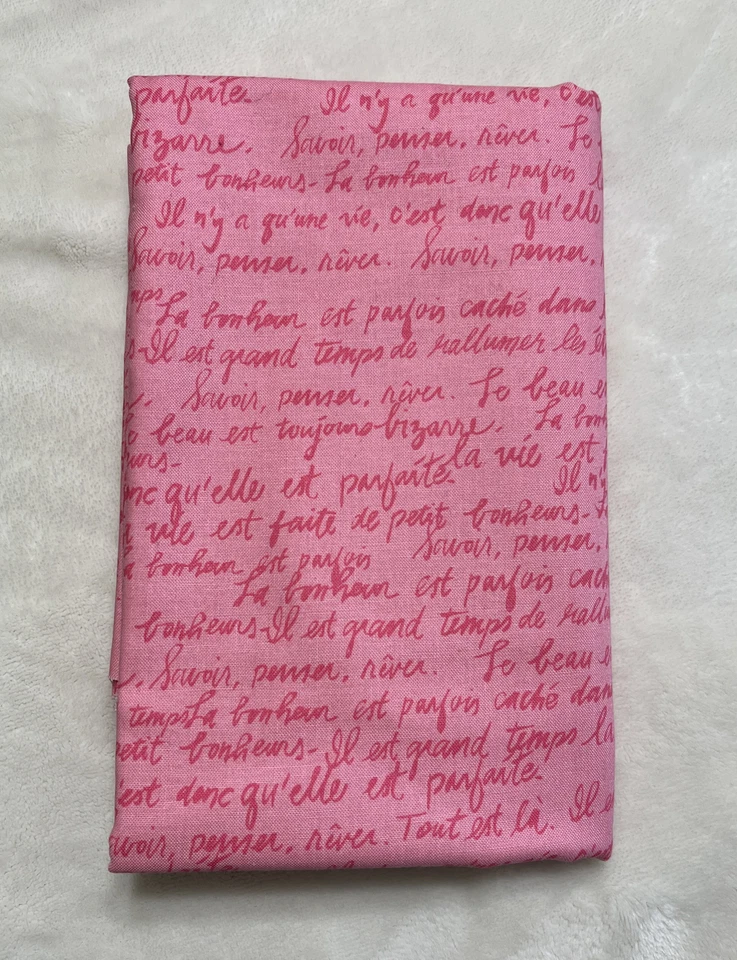 parfaite. Il n'y a qu'une vie, c'est
bizarre. Savoir, penser, rêver. Le
petit bonheurs- La bonheur est parfois
Il n'y a qu'une vie, c'est donc qu'elle
Savoir, penser, rêver. Savoir, penser,
mps La bonheur est parfois caché dans
s-Il est grand temps de rallumer les é
Savoir, penser, rêver. Le beau e
e beau est toujours bizarre. La bonh
urs- la vie est f
nc qu'elle est parfaite. Il n'y
a vie est faite de petit bonheurs-
Savoir, penser,
a bonheur est parfois
La bonheur est parfois cach
bonheurs-Il est grand temps de rallu
Savoir, penser, rêver. Le beau e
temps La bonheur est parfois caché dan
petit bonheurs- Il est grand temps la
'est donc qu'elle est parfaite.
avoir, penser, rêver. Tout est là. Il e